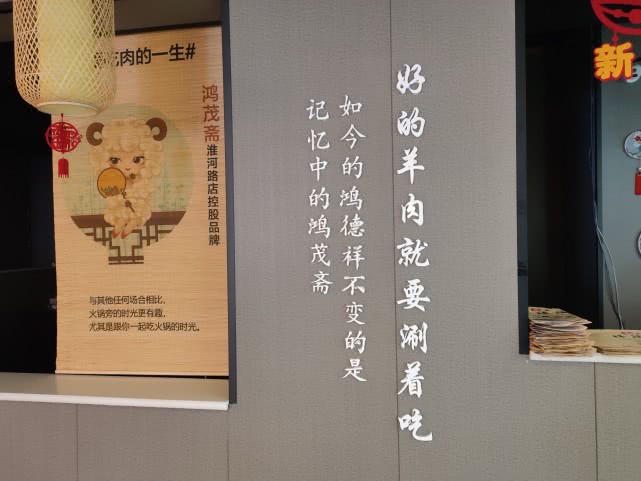 吃肉的一生#
鸿茂斋
淮河路店控股品牌
与其他任何场合相比，
火锅旁的时光更有趣，
尤其是跟你一起吃火锅的时光。
好的羊肉就要涮着吃
如今的鸿德祥不变的是
记忆中的鸿茂斋
新